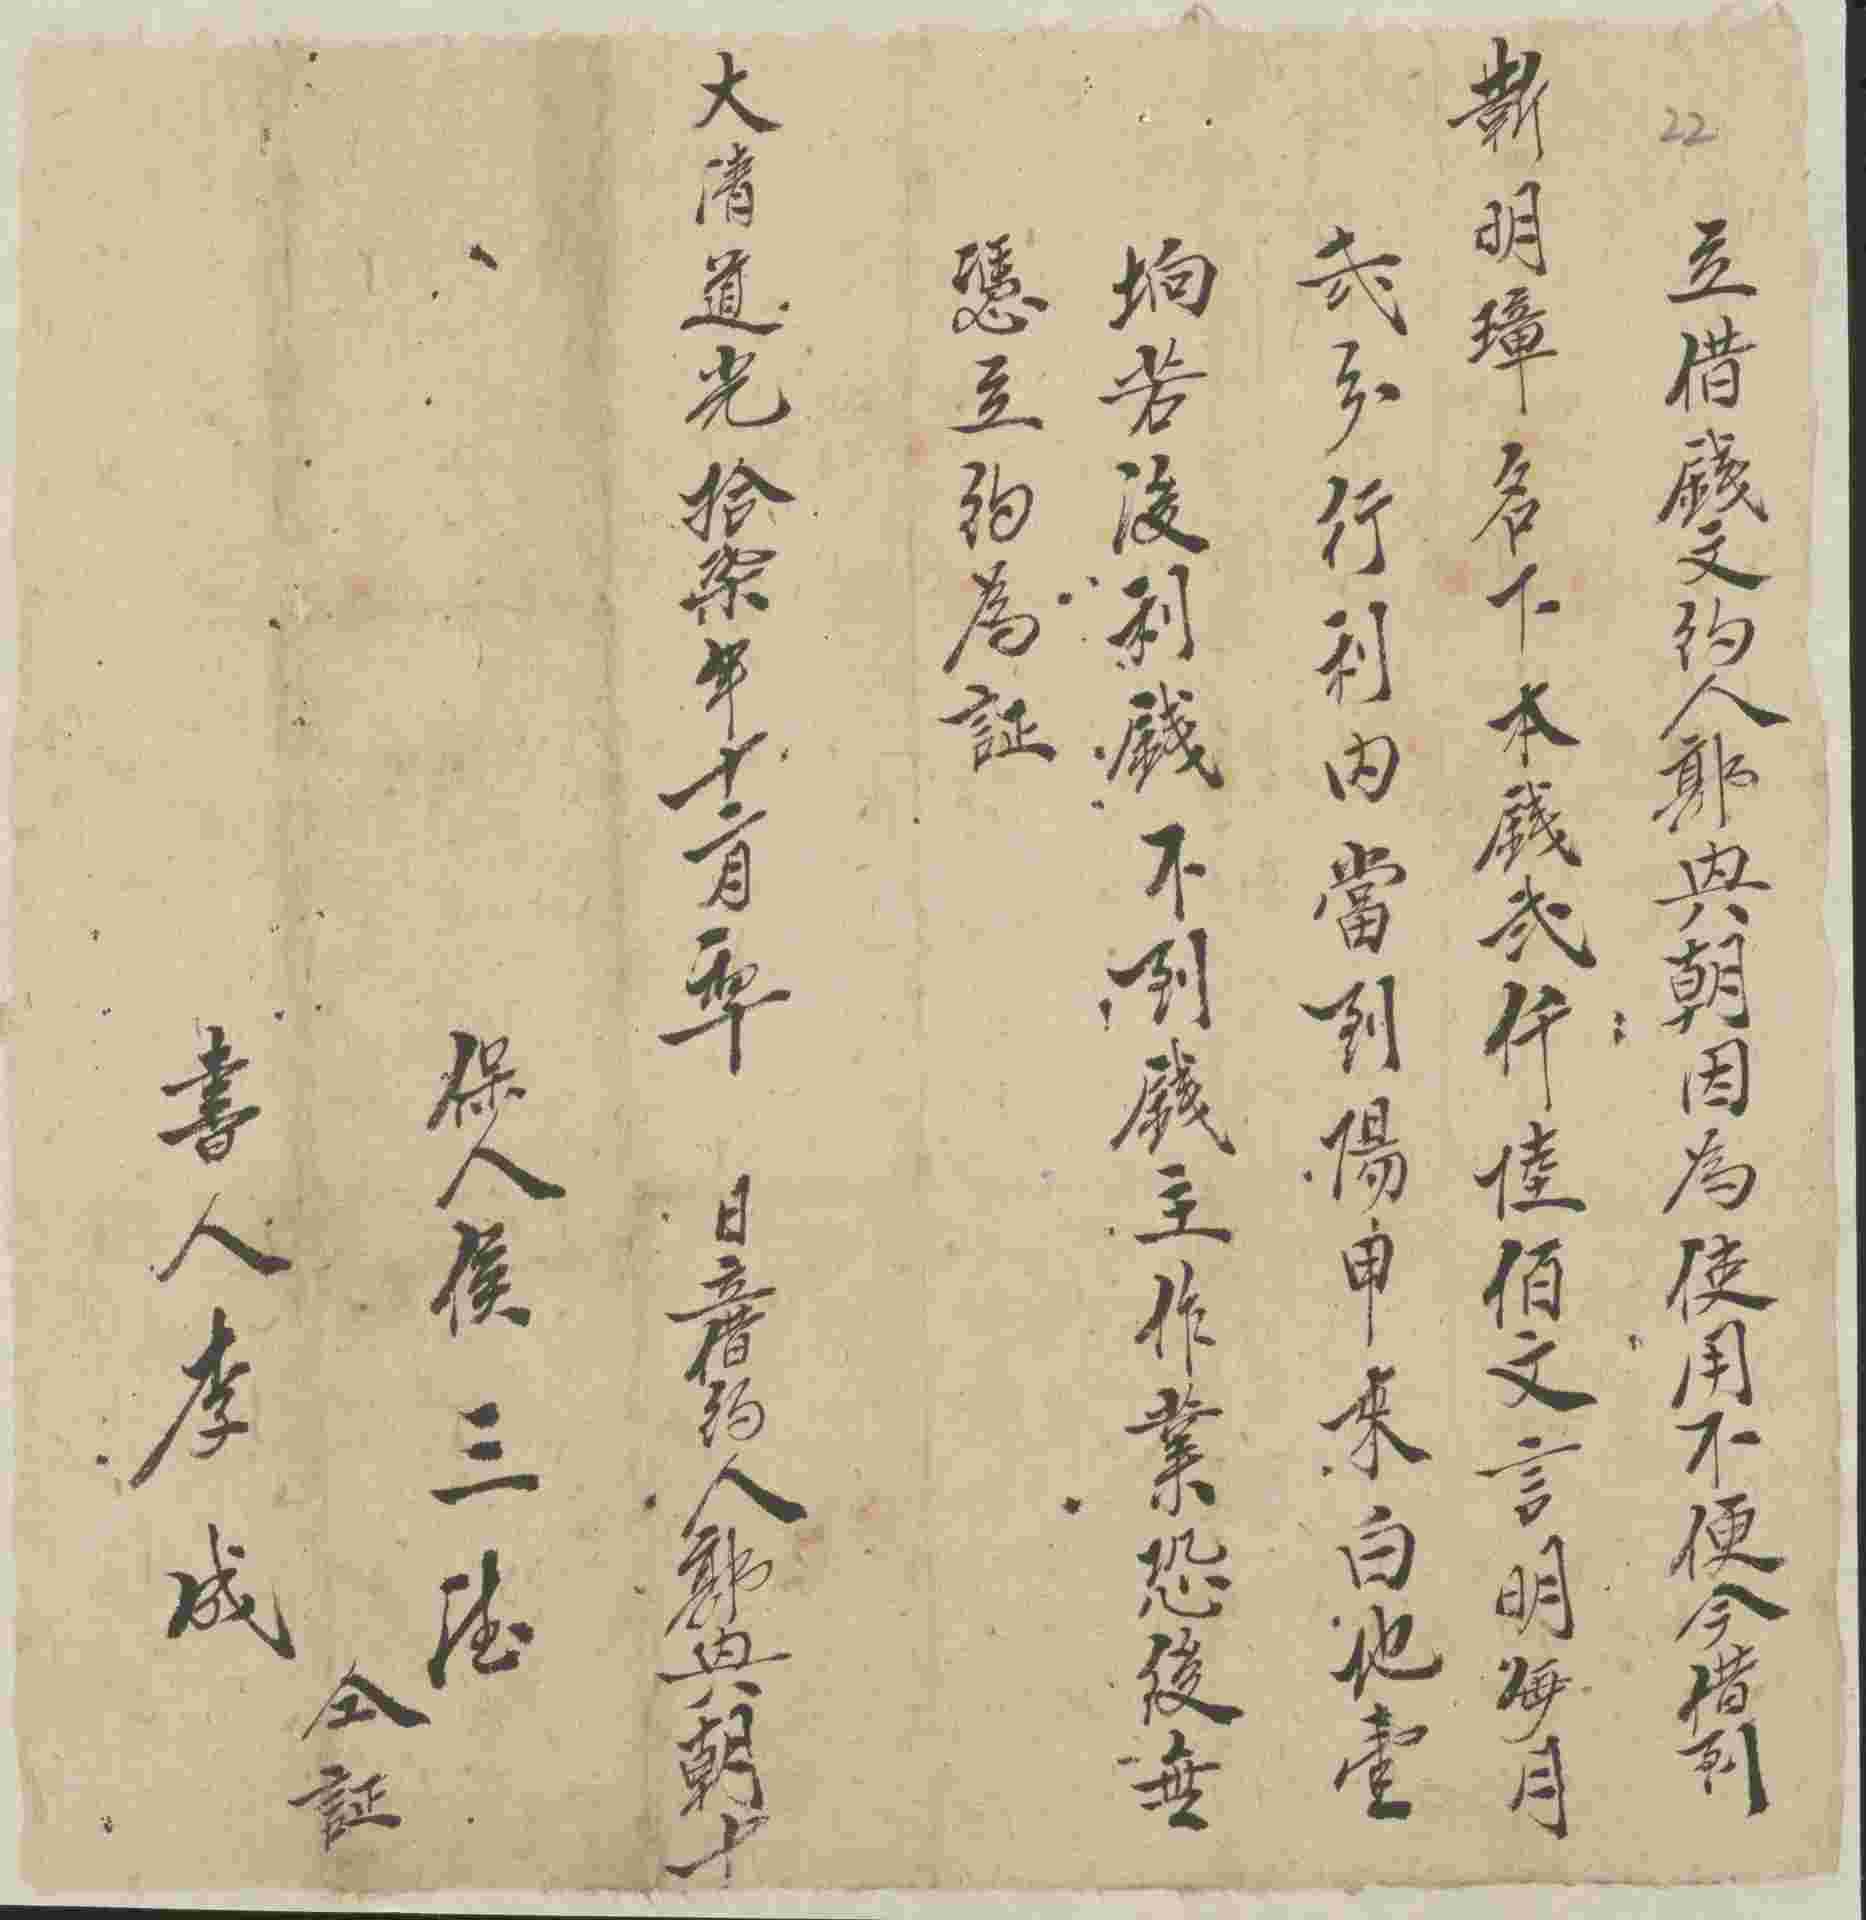 22
立借錢文約人郭典朝因為使用不便今借到
靳明璋名下本錢弍仟陸佰文言明每月
弍分行利內當到陽申来白地壹
垧若後利錢不到錢主作業恐後無
憑立約為証
大清道光拾柒年十二月 日立借約人郭典朝十
保人侯三
仝証
書人李成